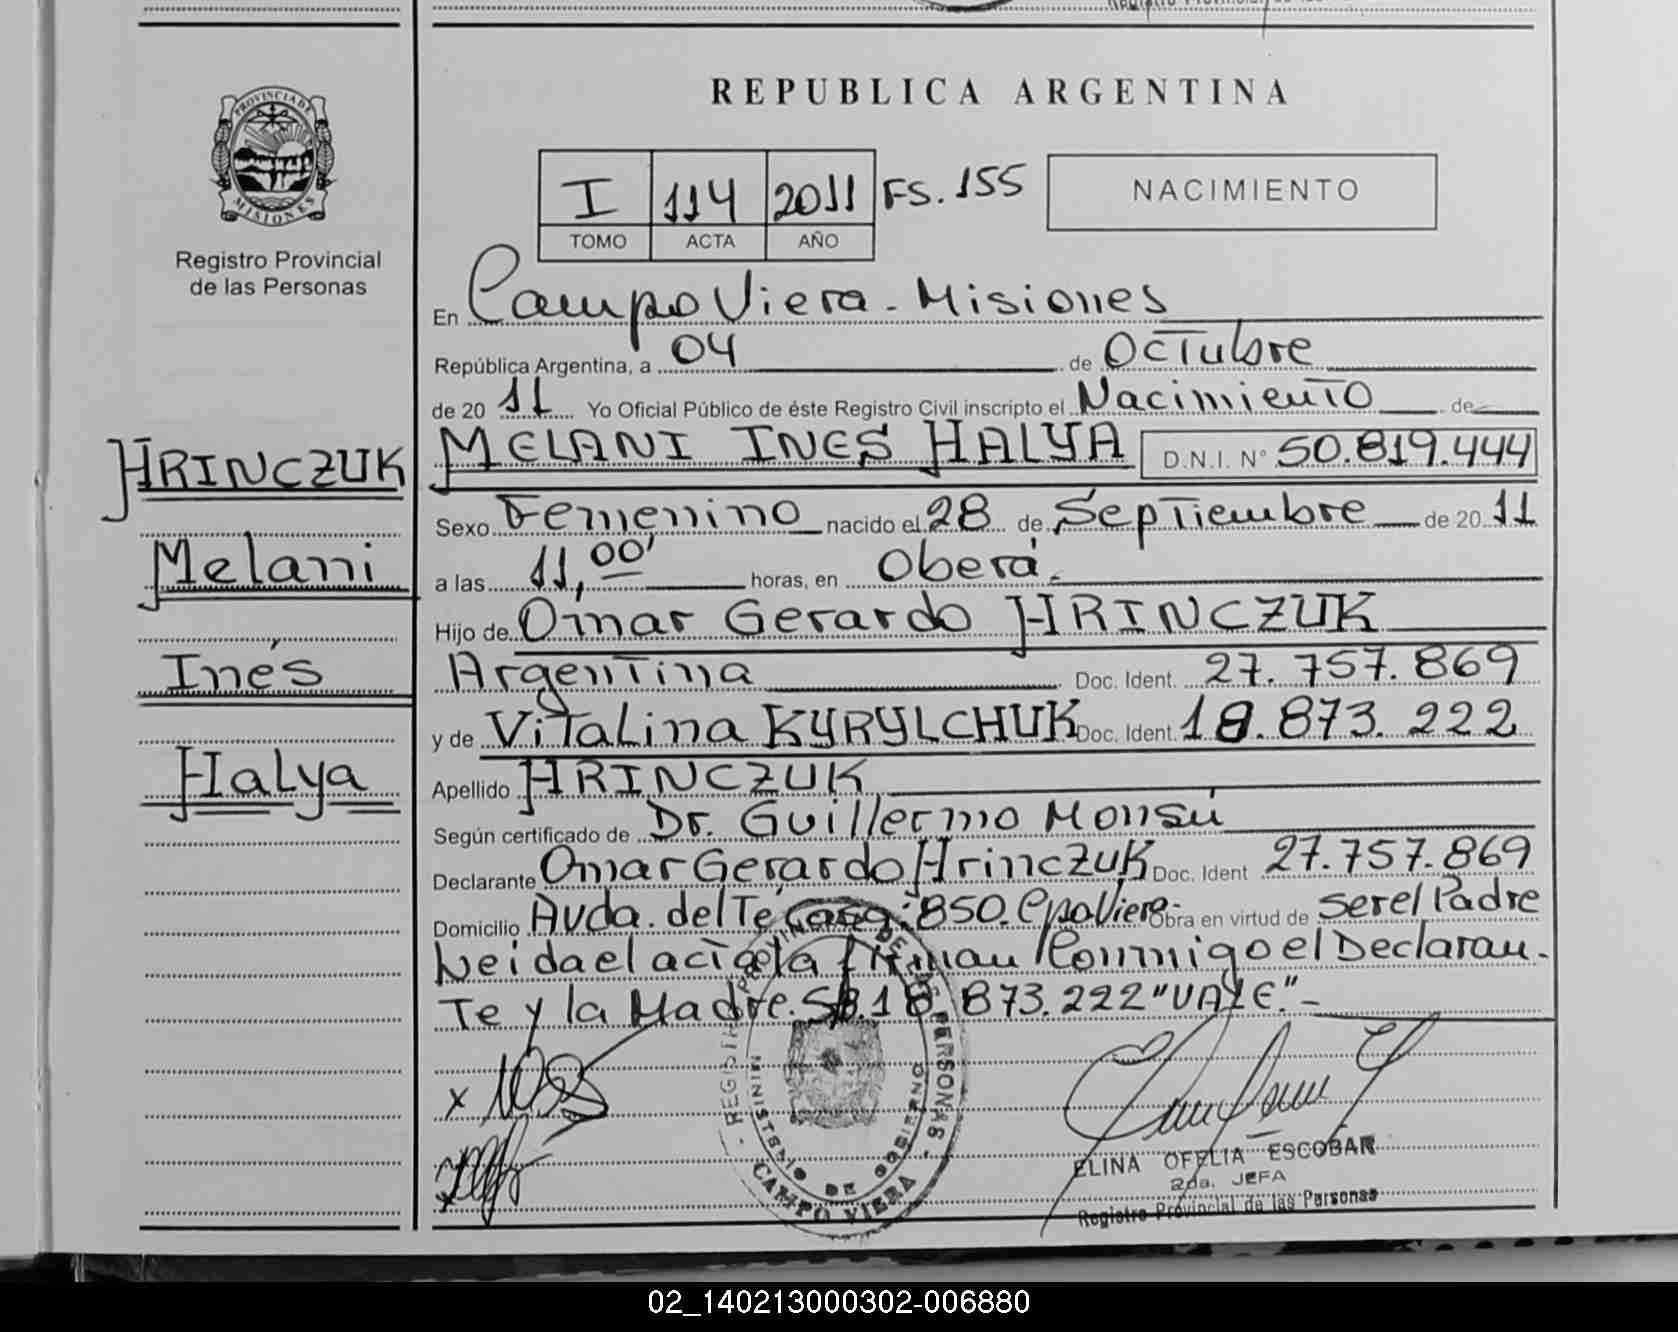 REPUBLICA ARGENTINA
PROVINCIA DE MISIONES
Registro Provincial
de las Personas
I 114 2011 FS. 155
TOMO ACTA AÑO
NACIMIENTO
En Campo Viera - Misiones
República Argentina, a 04 de Octubre
de 20 11 Yo Oficial Público de éste Registro Civil inscripto el Nacimiento de
HRINCZUK
Melani
Inés
Halya
MELANI INES HALYA D.N.I. N° 50.819.444
Sexo Femenino nacido el 28 de Septiembre de 20 11
a las 11,00' horas, en Oberá.
Hijo de Omar Gerardo HRINCZUK
Argentina Doc. Ident. 27.757.869
y de Vitalina KYRYLCHUK Doc. Ident. 18.873.222
Apellido HRINCZUK
Según certificado de Dr. Guillermo Monsú
Declarante Omar Gerardo Hrinczuk Doc. Ident 27.757.869
Domicilio Avda. del Té Casa: 850. Cpo Viera- Obra en virtud de ser el Padre
Leida el acta la firman Conmigo el Declaran-
te y la Madre. S/B. 18.873.222 "VALE".-
- REGISTRO PROVINCIAL DE LAS PERSONAS -
MINISTERIO DE GOBIERNO
CAMPO VIERA
ELINA OFELIA ESCOBAR
2da. JEFA
Registro Provincial de las Personas
02_140213000302-006880